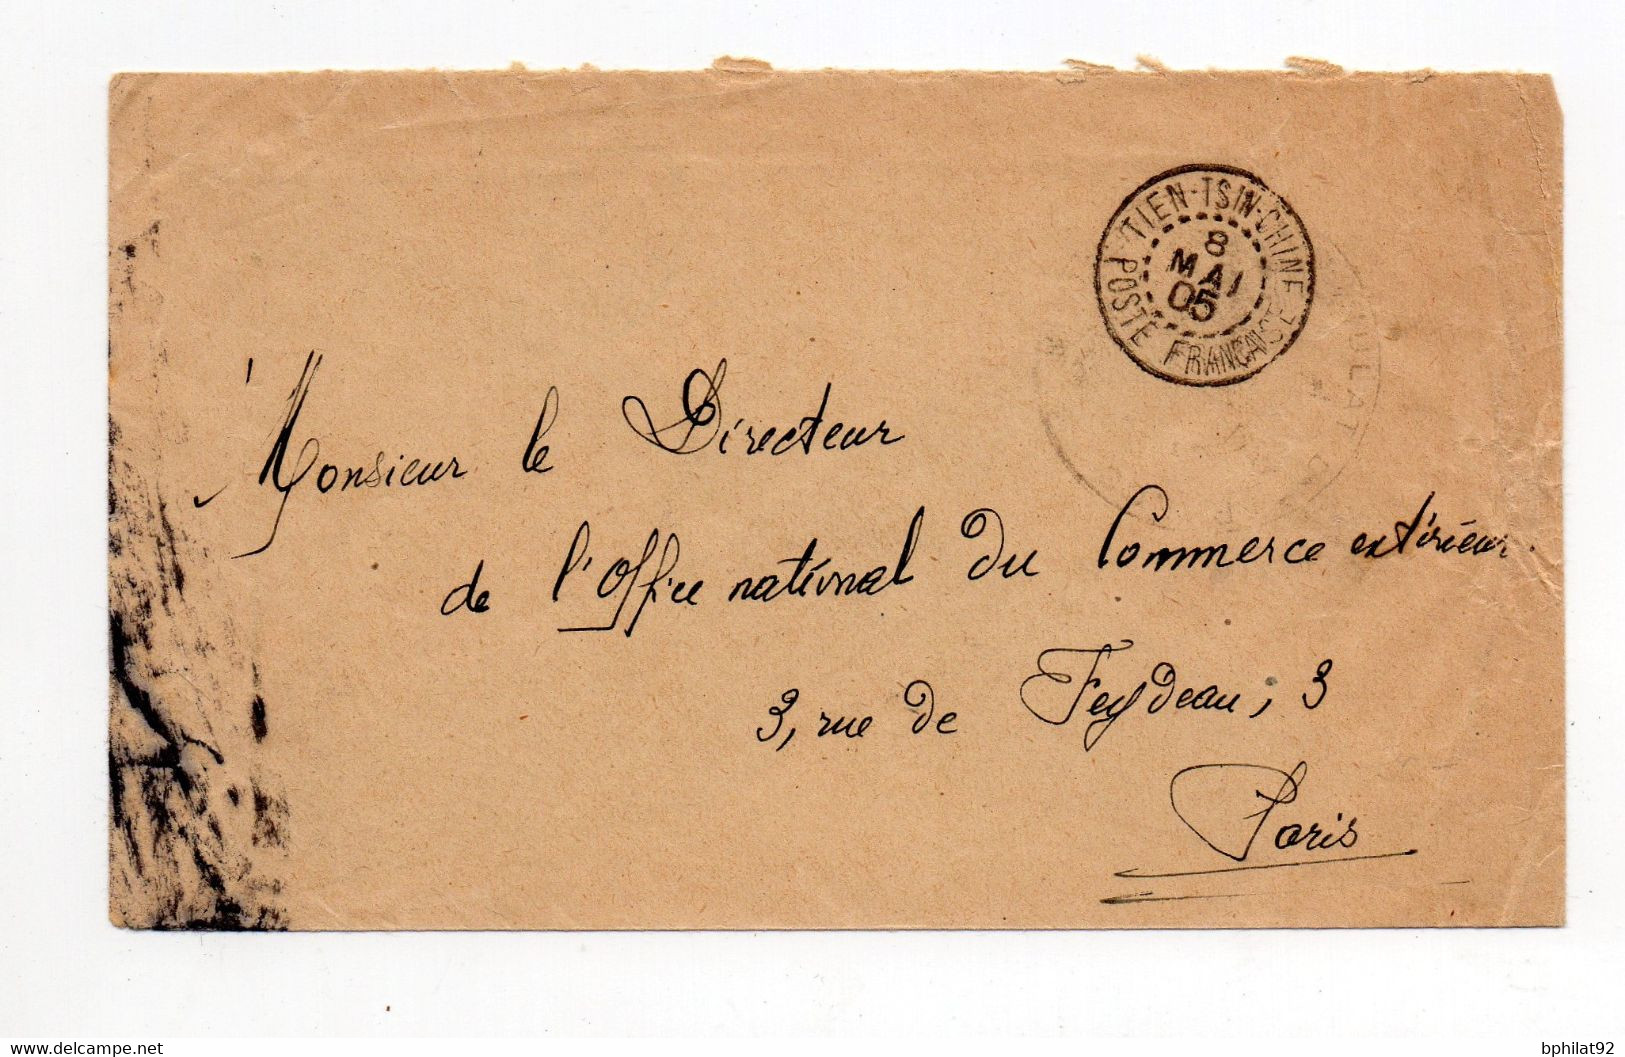 TIEN-TSIN-CHINE
8
MAI
05
POSTE FRANÇAISE
Monsieur le Directeur
de l'Office national du Commerce extérieur.
3, rue de Feydeau, 3
Paris
www.delcampe.net
bphilat92